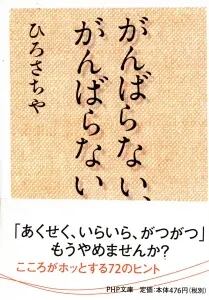 がんばらない、
がんばらない
ひろさちや
「あくせく、いらいら、がつがつ」
もうやめませんか?
こころがホッとする72のヒント
PHP文庫 定価:本体476円(税別)